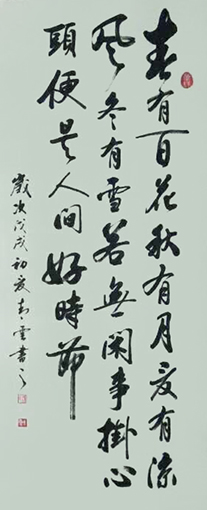 春有百花秋有月夏有涼
風冬有雪若無閑事掛心
頭便是人間好時節
歲次戊戌初夏青雲書之